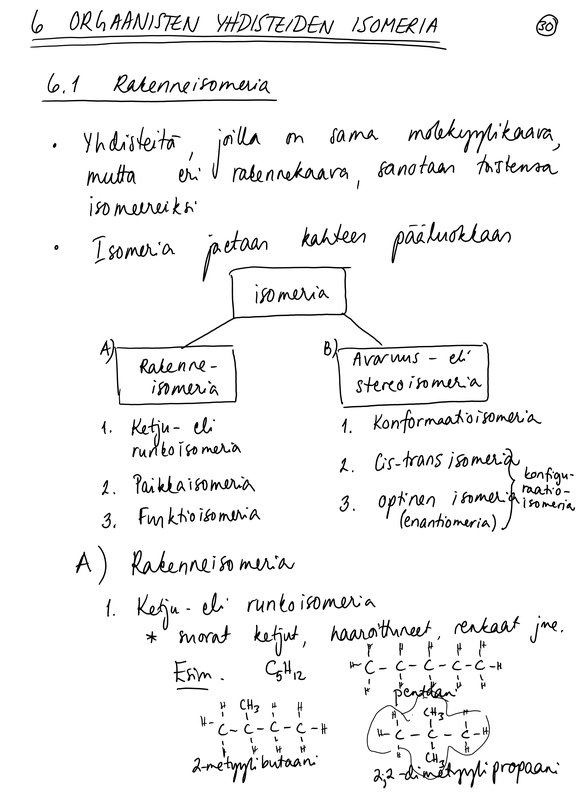 6 ORGAANISTEN YHDISTEIDEN ISOMERIA
30
6.1 Rakenneisomeria
• Yhdisteitä, joilla on sama molekyylikaava,
mutta eri rakennekaava, sanotaan toistensa
isomeereiksi
• Isomeria jaetaan kahteen pääluokkaan
isomeria
A) Rakenne-
isomeria
B) Avaruus- eli
stereoisomeria
1. Ketju- eli
runkoisomeria
2. Paikkaisomeria
3. Funktioisomeria
1. Konformaatioisomeria
2. Cis-trans isomeria
3. optinen isomeria
(enantiomeria)
konfigu-
raatio-
isomeria
A) Rakenneisomeria
1. Ketju- eli runkoisomeria
* suorat ketjut, haaroittuneet, renkaat jne.
Esim. C5H12
H H H H H
H-C-C-C-C-C-H
H H H H H
pentaani
H CH3 H H
H-C-C-C-C-H
H H H H
2-metyylibutaani
H CH3 H
H-C-C-C-H
H CH3 H
2,2-dimetyylipropaani